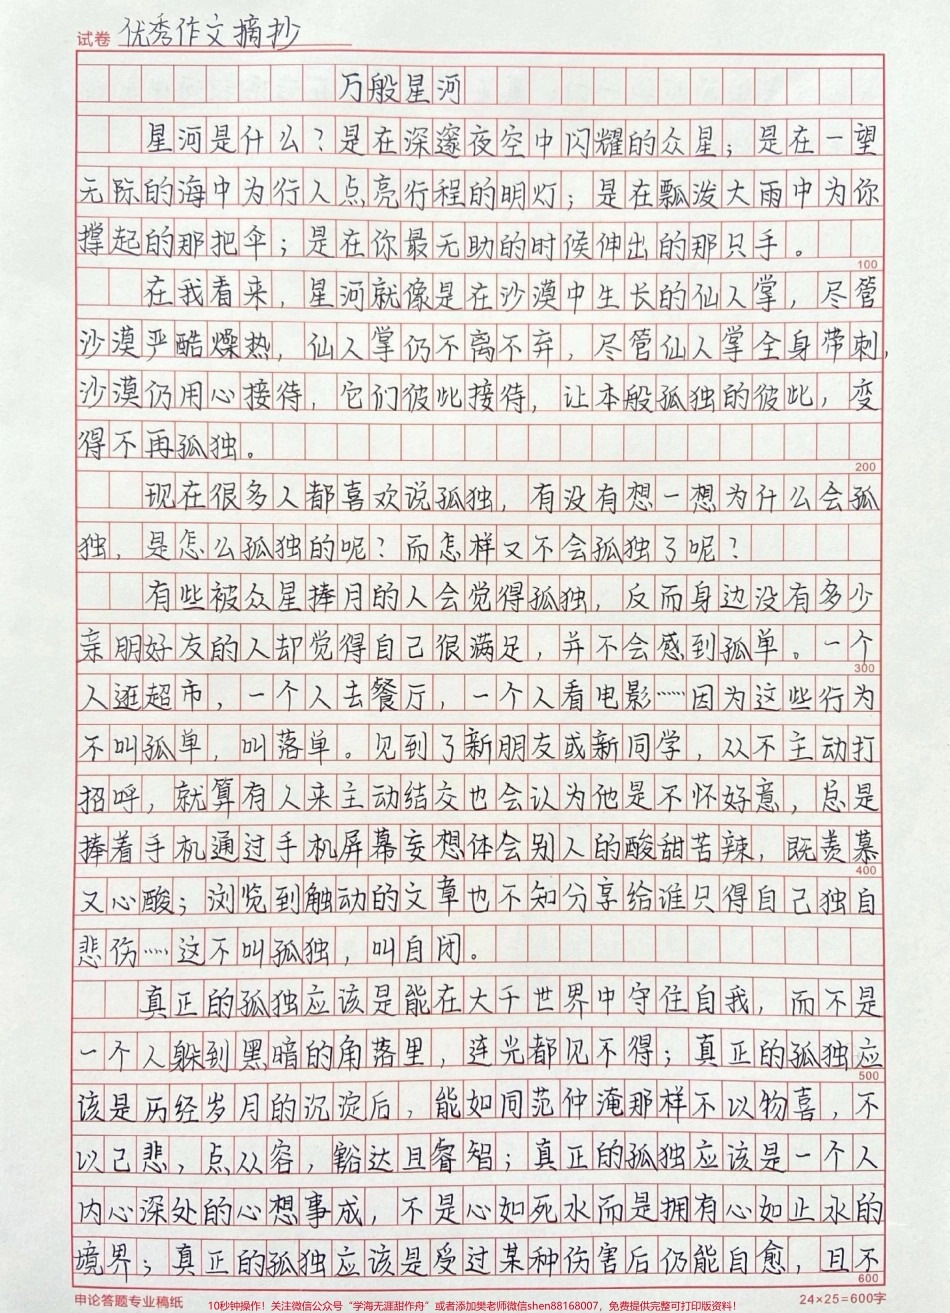 试卷 优秀作文摘抄
万般星河
星河是什么？是在深邃夜空中闪耀的众星；是在一望
无际的海中为行人点亮行程的明灯；是在瓢泼大雨中为你
撑起的那把伞；是在你最无助的时候伸出的那只手。
100
在我看来，星河就像是在沙漠中生长的仙人掌，尽管
沙漠严酷燥热，仙人掌仍不离不弃，尽管仙人掌全身带刺，
沙漠仍用心接待，它们彼此接待，让本般孤独的彼此，变
得不再孤独。
200
现在很多人都喜欢说孤独，有没有想一想为什么会孤
独，是怎么孤独的呢？而怎样又不会孤独了呢？
有些被众星捧月的人会觉得孤独，反而身边没有多少
亲朋好友的人却觉得自己很满足，并不会感到孤单。一个
300
人逛超市，一个人去餐厅，一个人看电影……因为这些行为
不叫孤单，叫落单。见到了新朋友或新同学，从不主动打
招呼，就算有人来主动结交也会认为他是不怀好意，总是
捧着手机通过手机屏幕妄想体会别人的酸甜苦辣，既羡慕
400
又心酸；浏览到触动的文章也不知分享给谁只得自己独自
悲伤……这不叫孤独，叫自闭。
真正的孤独应该是能在大千世界中守住自我，而不是
一个人躲到黑暗的角落里，连光都见不得；真正的孤独应
500
该是历经岁月的沉淀后，能如同范仲淹那样不以物喜，不
以己悲，点从容，豁达且睿智；真正的孤独应该是一个人
内心深处的心想事成，不是心如死水而是拥有心如止水的
境界；真正的孤独应该是受过某种伤害后仍能自愈，且不
600
申论答题专业稿纸 24×25=600字
10秒钟操作！关注微信公众号“学海无涯甜作舟”或者添加樊老师微信shen88168007，免费提供完整可打印版资料！